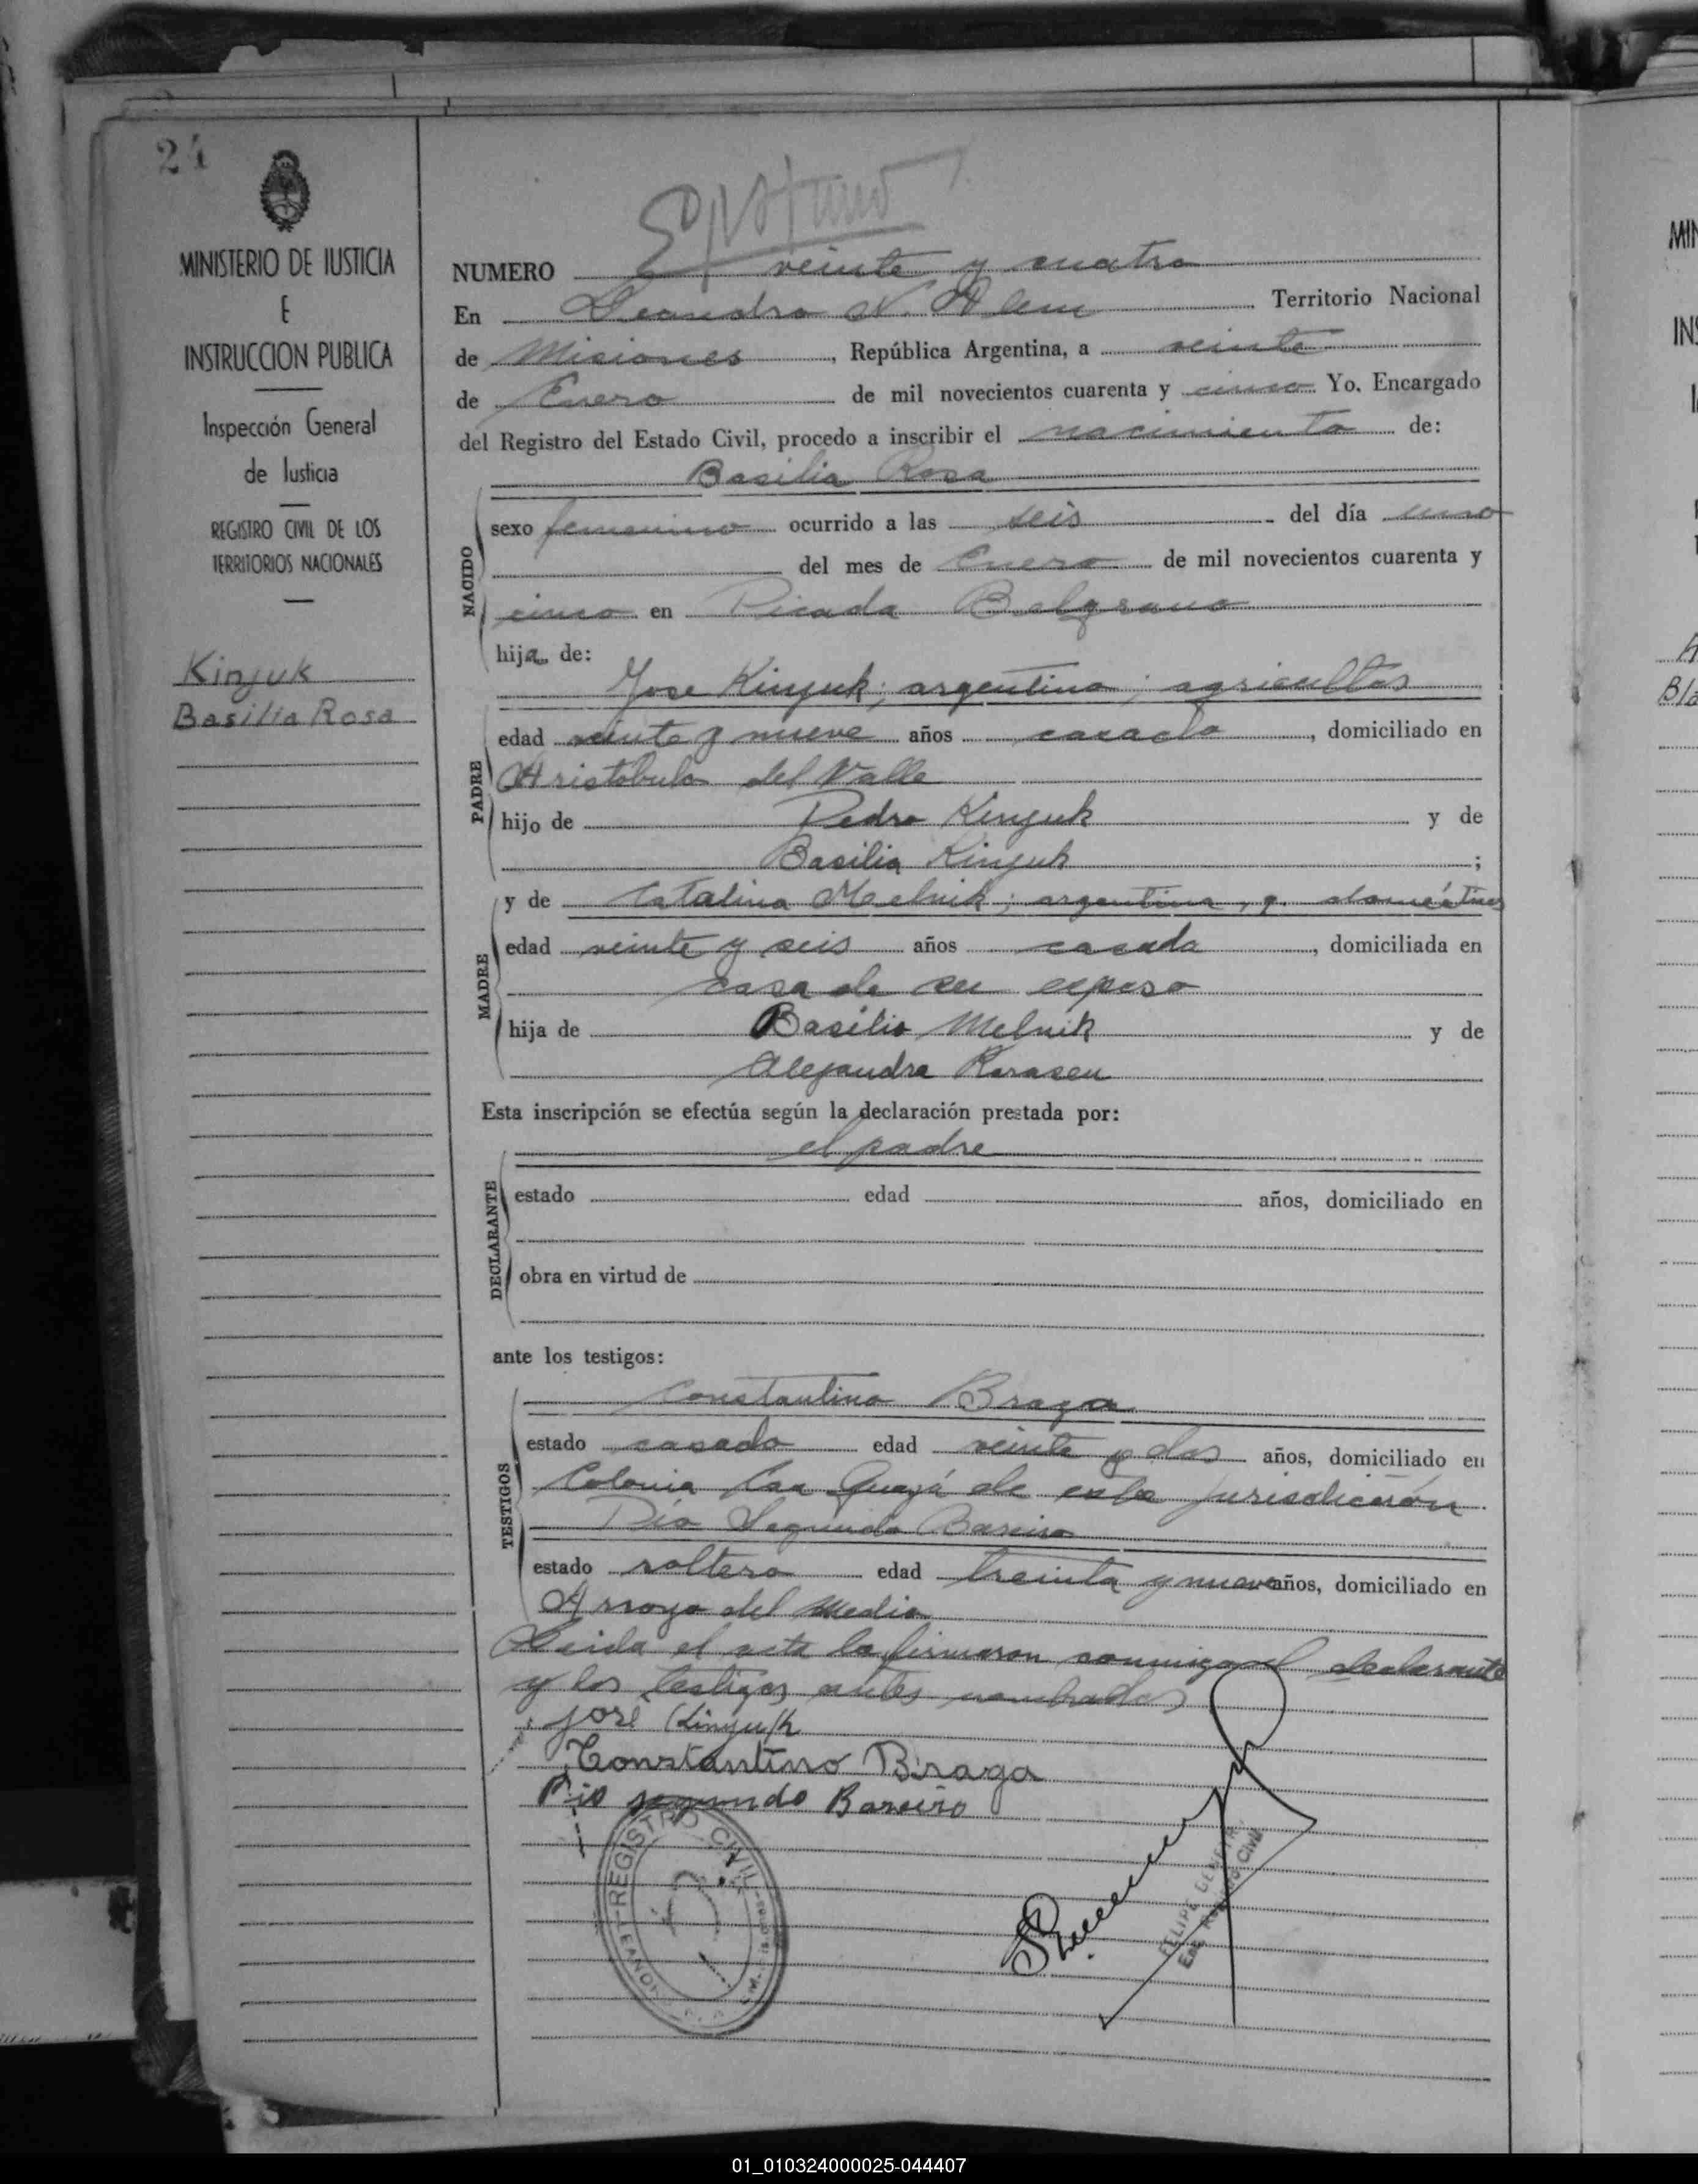 24
MINISTERIO DE JUSTICIA
E
INSTRUCCION PUBLICA
Inspección General
de Justicia
REGISTRO CIVIL DE LOS
TERRITORIOS NACIONALES
Kinjuk
Basilia Rosa
NUMERO veinte y cuatro
En Leandro N. Alem Territorio Nacional
de Misiones, República Argentina, a veinte
de Enero de mil novecientos cuarenta y cinco Yo, Encargado
del Registro del Estado Civil, procedo a inscribir el nacimiento de:
Basilia Rosa
NACIDO
sexo femenino ocurrido a las seis del día uno
del mes de Enero de mil novecientos cuarenta y
cinco en Picada Belgrano
hija de:
PADRE
Jose Kinjuk; argentino; agricultor
edad veinte y nueve años casado, domiciliado en
Aristobulo del Valle
hijo de Pedro Kinjuk y de
Basilia Kinjuk;
MADRE
y de Catalina Melnik; argentina, q. domésticos
edad veinte y seis años casada, domiciliada en
casa de su esposo
hija de Basilio Melnik y de
Alejandra Karasen
Esta inscripción se efectúa según la declaración prestada por:
el padre
DECLARANTE
estado edad años, domiciliado en
obra en virtud de
ante los testigos:
TESTIGOS
Constantino Braga
estado casado edad veinte y dos años, domiciliado en
Colonia Caa Guazú de esta jurisdicción
Pio Segundo Bareiro
estado soltero edad treinta y nueve años, domiciliado en
Arroyo del Medio
Leida el acta la firmaron conmigo el declarante
y los testigos antes nombrados
José Kinyuk
Constantino Braga
Pio segundo Bareiro
REGISTRO CIVIL
LEANDRO
FELIPE
Enc. Registro Civil
01_010324000025-044407